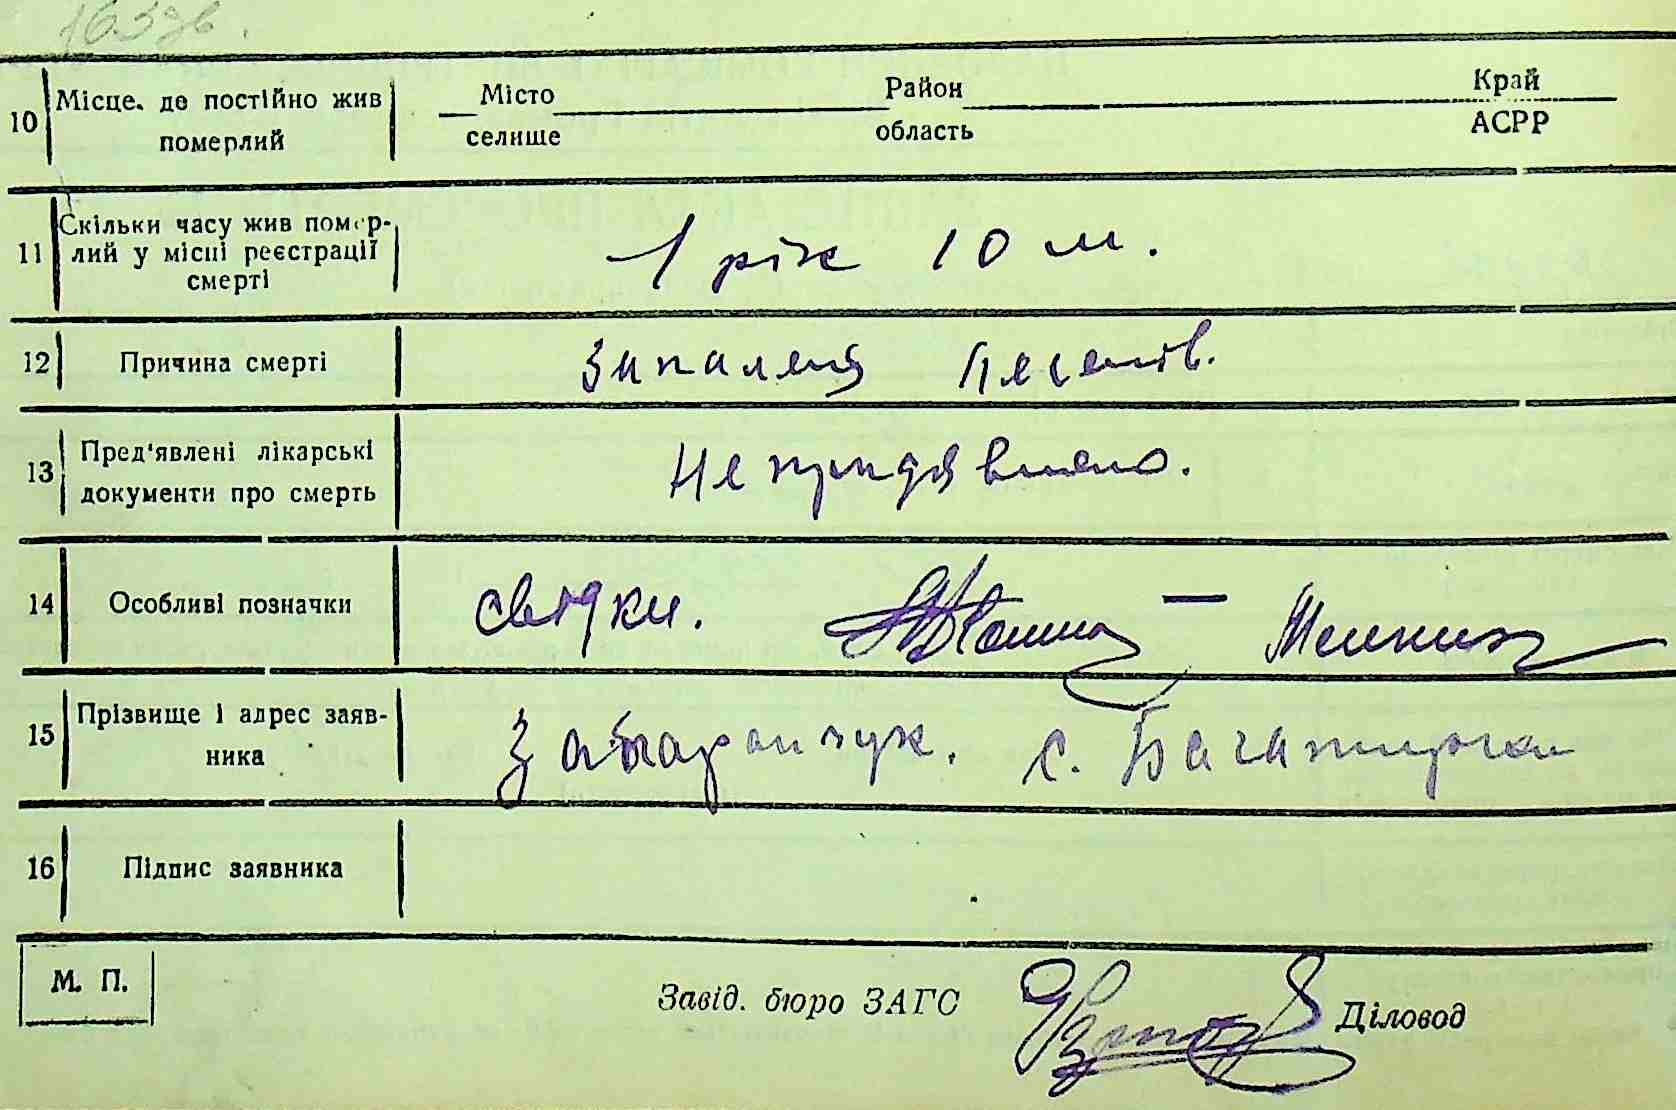 10 Місце, де постійно жив померлий Місто селище Район область Край АСРР
11 Скільки часу жив помер-
лий у місці реєстрації
смерті 1 рік 10 м.
12 Причина смерті Запаленя Легенів.
13 Пред'явлені лікарські
документи про смерть Не придявлено.
14 Особливі позначки свідки. –
15 Прізвище і адрес заяв-
ника с. Багатирка
16 Підпис заявника
М. П.
Завід. бюро ЗАГС Діловод